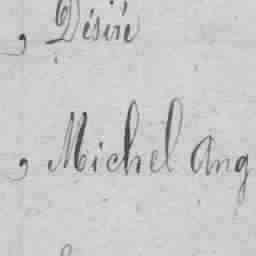 , Désiré
, Michel Ang